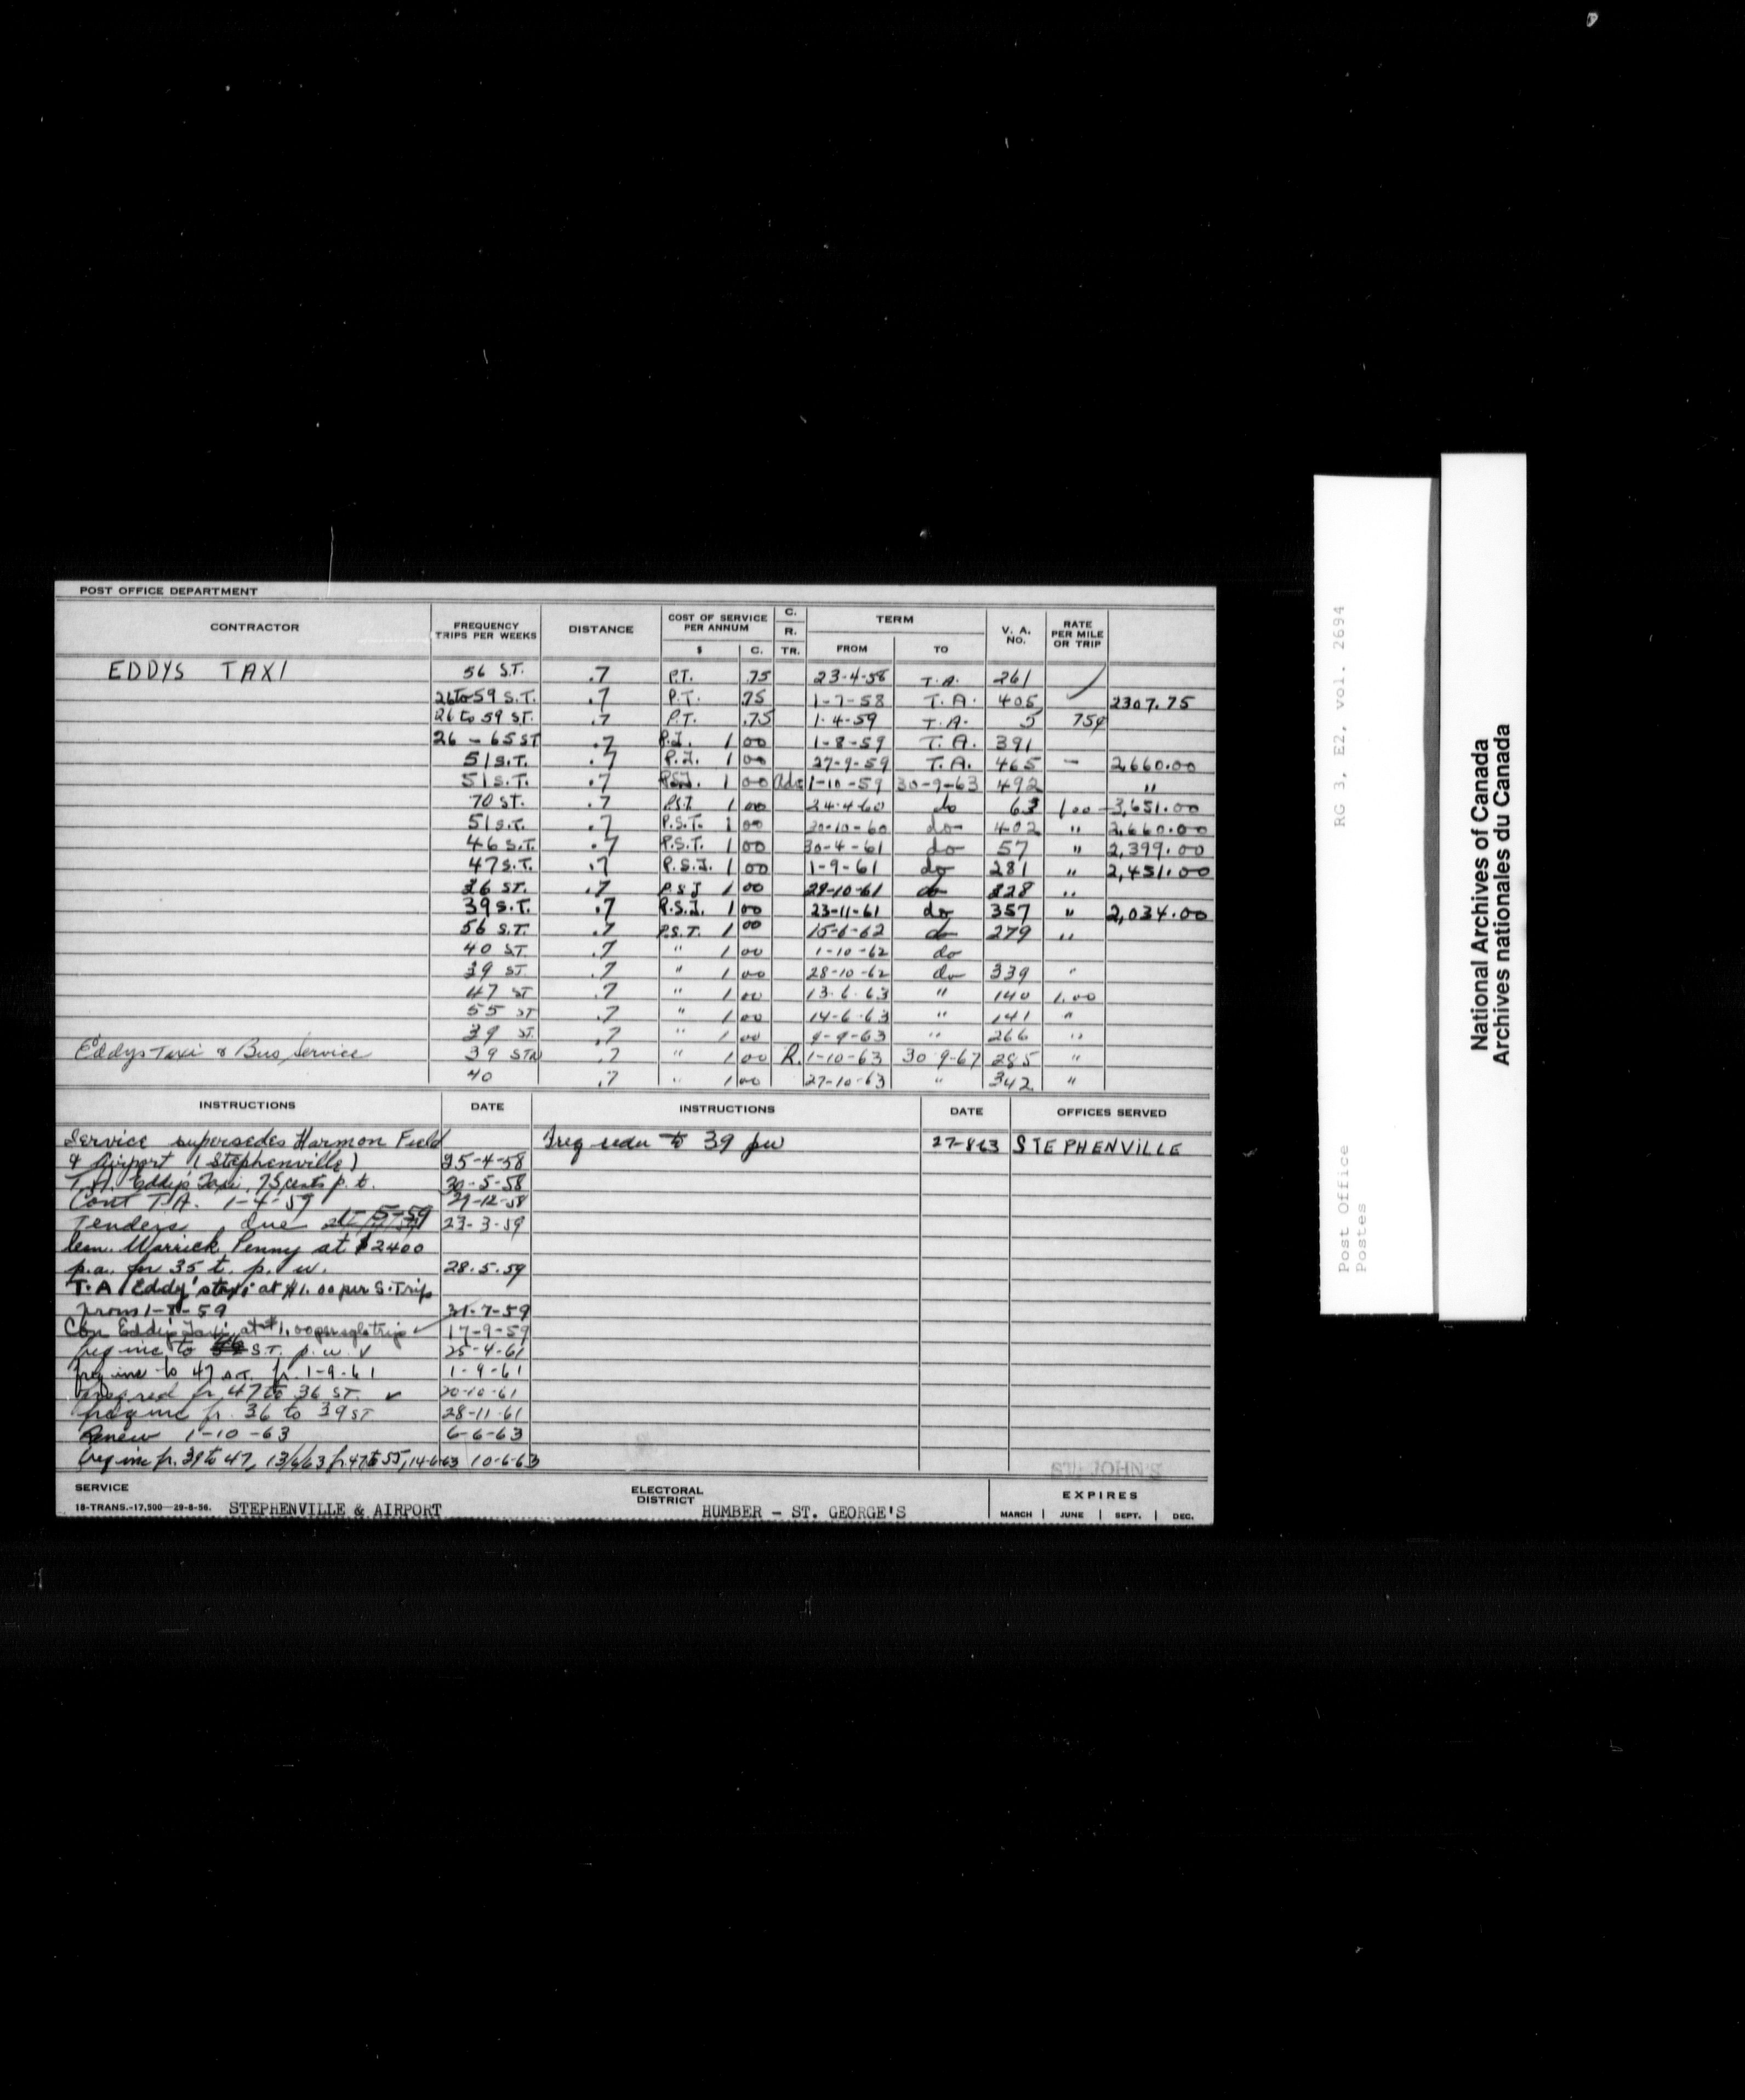 POST OFFICE DEPARTMENT
CONTRACTOR FREQUENCY TRIPS PER WEEKS DISTANCE COST OF SERVICE PER ANNUM $ C. C. R. TR. TERM FROM TO V. A. NO. RATE PER MILE OR TRIP
EDDYS TAXI 56 S.T. .7 P.T. .75 23-4-58 T.A. 261
26 to 59 S.T. .7 P.T. .75 1-7-58 T.A. 405 2307.75
26 to 59 ST. .7 P.T. .75 1-4-59 T.A. 5 75¢
26 - 65 ST .7 P.T. 1 00 1-8-59 T.A. 391
51 S.T. .7 P.T. 1 00 27-9-59 T.A. 465 - 2,660.00
51 S.T. .7 P.S.T. 1 00 1-10-59 30-9-63 492 "
70 ST. .7 P.S.T 1 00 24-4-60 do 63 1.00 3,651.00
51 S.T. .7 P.S.T. 1 00 30-10-60 do 402 " 2,660.00
46 S.T. .7 P.S.T. 1 00 30-4-61 do 57 " 2,399.00
47 S.T. .7 P.S.T. 1 00 1-9-61 do 281 " 2,451.00
36 ST. .7 P.S.T 1 00 29-10-61 do 328 "
39 S.T. .7 P.S.T. 1 00 23-11-61 do 357 " 2,034.00
56 S.T. .7 P.S.T. 1 00 15-6-62 do 279 "
40 ST. .7 " 1 00 1-10-62 do
39 ST. .7 " 1 00 28-10-62 do 339 "
47 ST .7 " 1 00 13-6-63 " 140 1.00
55 ST .7 " 1 00 14-6-63 " 141 "
39 ST. .7 " 1 00 9-9-63 " 266 "
Eddys Taxi & Bus Service 39 STN .7 " 1 00 R. 1-10-63 30-9-67 285 "
40 .7 " 1 00 27-10-63 " 342 "
INSTRUCTIONS DATE INSTRUCTIONS DATE OFFICES SERVED
Service supersedes Harmon Field Freq redu to 39 pw 27-8-63 STEPHENVILLE
& Airport (Stephenville) 25-4-58
T.A. Eddy's Taxi, 75 cents p.t. 30-5-58
Cont T.A. 1-4-59 29-12-58
Tenders due 5-59 23-3-59
Warrick Penny at $2400
p.a. for 35 t. p. w. 28.5.59
T.A Eddy's taxi at $1.00 per S.Trip
From 1-8-59 31-7-59
Con Eddy's Taxi at $1.00 per sgle trip 17-9-59
freq inc to S.T. p.w. 25-4-61
freq inc to 47 S.T. fr. 1-9-61 1-9-61
freq red fr 47 to 36 ST. 20-10-61
freq inc fr. 36 to 39 ST 28-11-61
Renew 1-10-63 6-6-63
freq inc fr. 39 to 47, 13/6/63 fr 47 to 55, 14-6-63 10-6-63
ST. JOHN'S
SERVICE ELECTORAL DISTRICT EXPIRES
18-TRANS.-17,500—29-8-56. STEPHENVILLE & AIRPORT HUMBER - ST. GEORGE'S MARCH | JUNE | SEPT. | DEC.
RG 3, E2, vol. 2694
Post Office
Postes
National Archives of Canada
Archives nationales du Canada